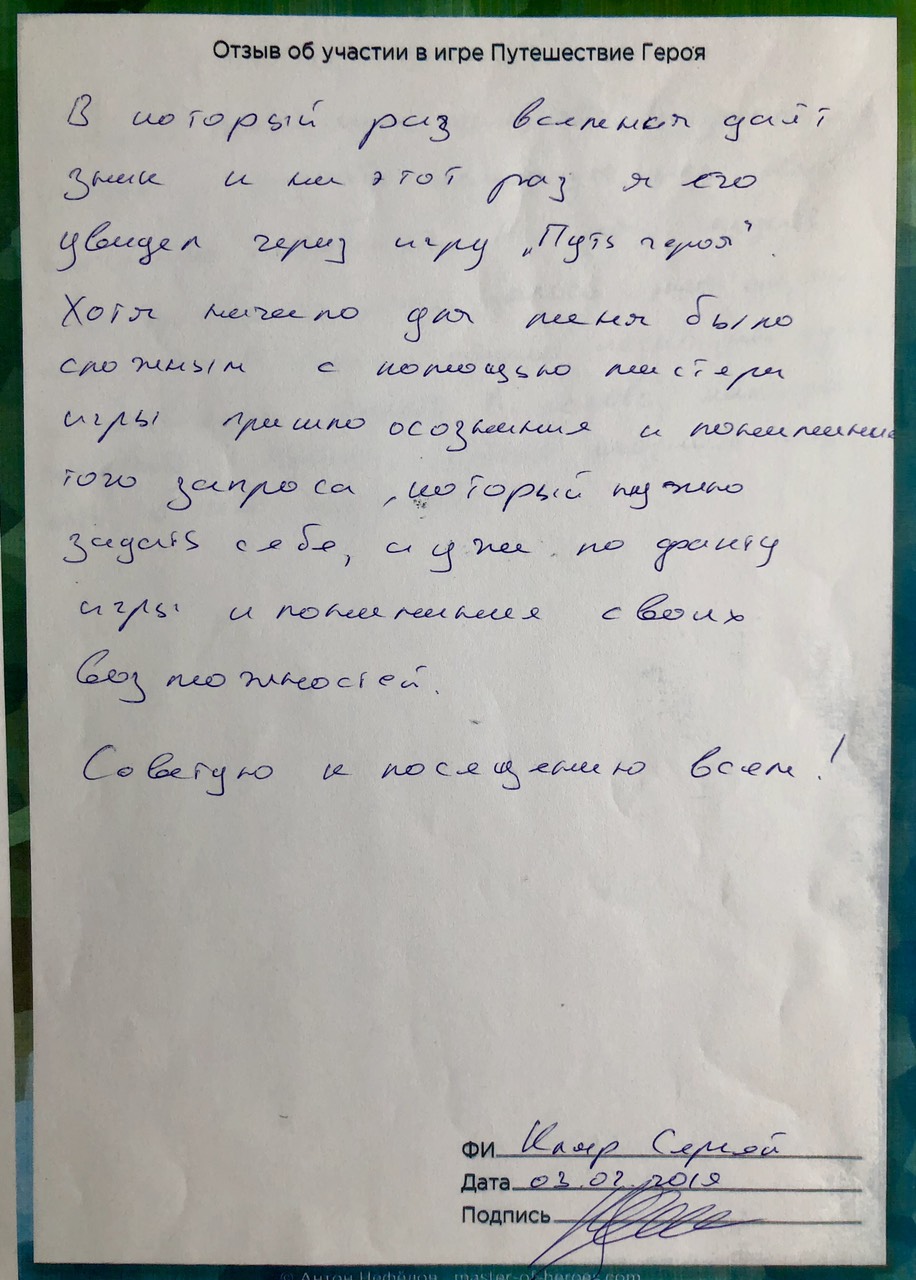 Отзыв об участии в игре Путешествие Героя
В который раз вселенная даёт
знак и на этот раз я его
увидел через игру „Путь героя"
Хотя начало для меня было
сложным с помощью мастера
игры пришло осознания и понимание
того запроса, который нужно
задать себе, а уже по факту
игры и понимания своих
возможностей.
Советую к посещению всем!
ФИ Сергей
Дата 03.02.2019
Подпись
© Антон Нефёдов master-of-heroes.com